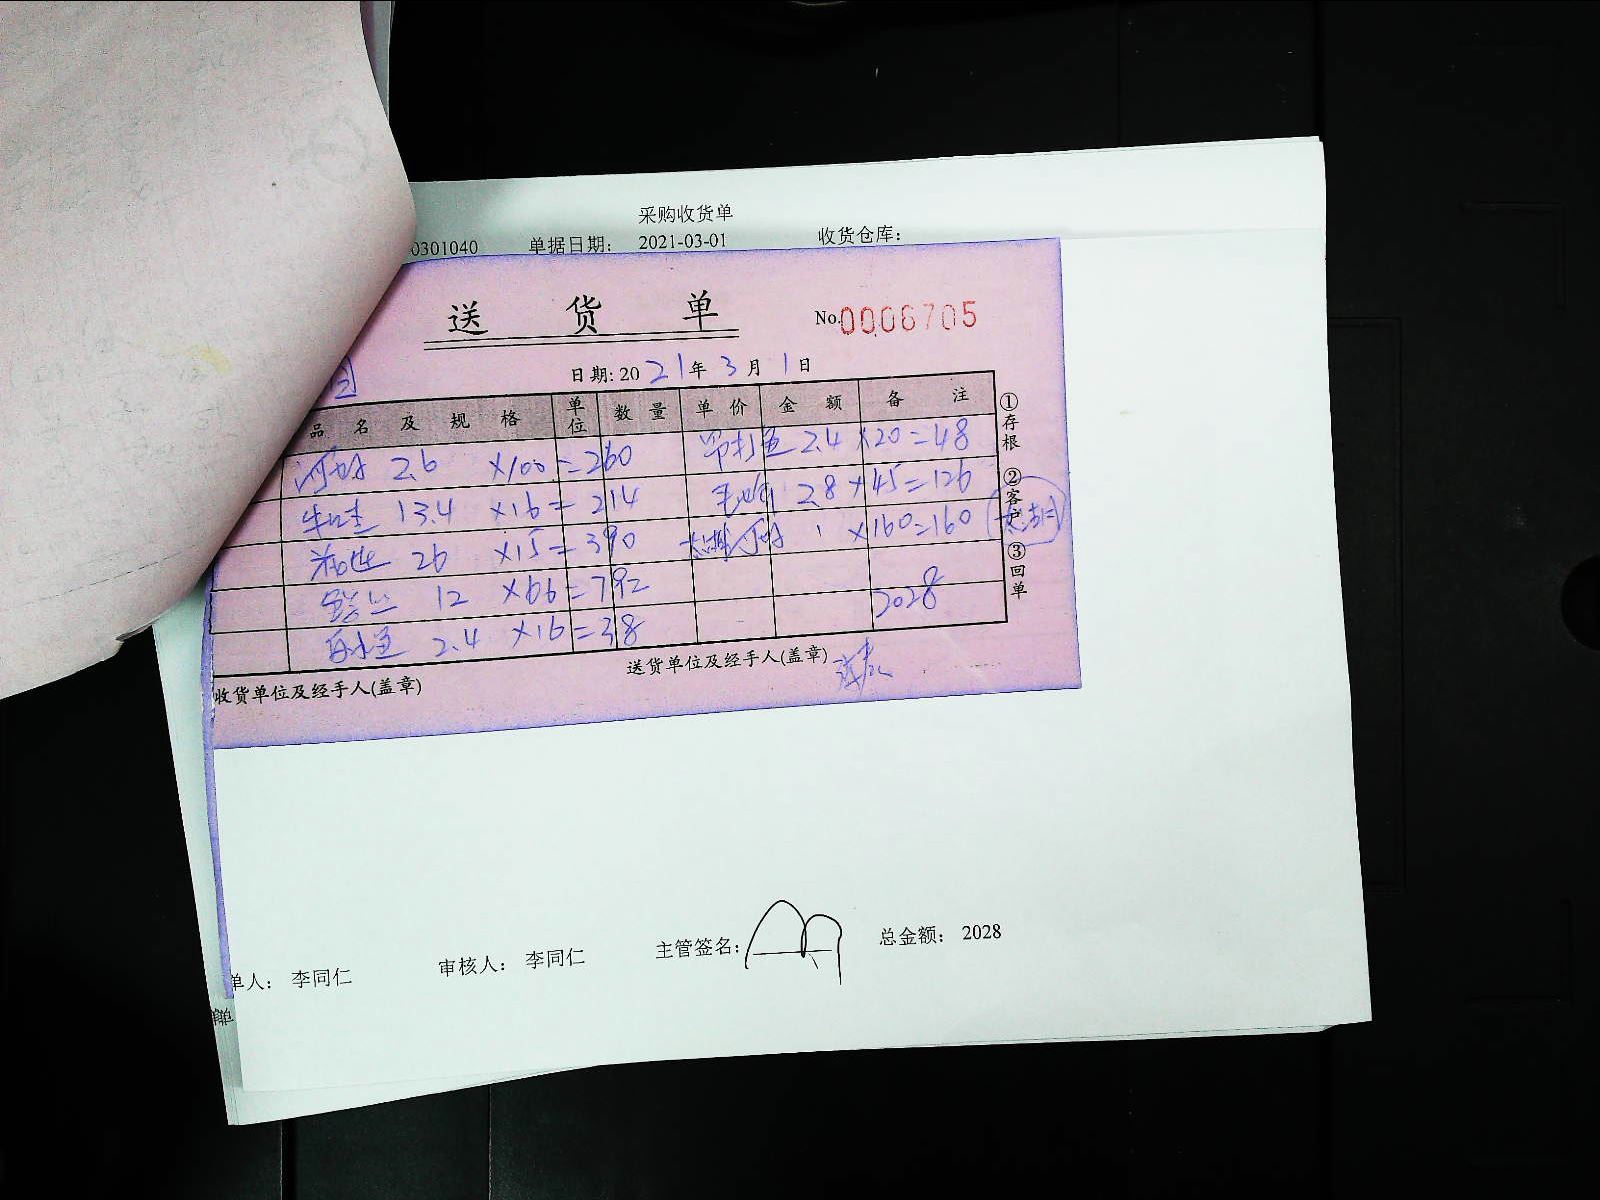 采购收货单
0301040 单据日期： 2021-03-01 收货仓库：
送货单 No.0006705
日期: 2021年3月1日
品名及规格 单位 数量 单价 金额 备注
河虾 2.6 ×100=260 2.4 ×20=48
牛蛙 13.4 ×16=214 2.8 ×45=126
26 ×15=390 河虾 1 ×160=160
12 ×66=792
2.4 ×16=38 2028
①存根 ②客户 ③回单
收货单位及经手人(盖章) 送货单位及经手人(盖章)
单人： 李同仁 审核人： 李同仁 主管签名： 总金额： 2028